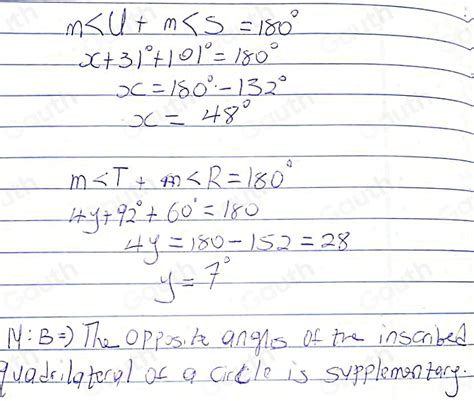 m<U + m<S = 180°
x+31°+101°=180°
x=180°-132°
x= 48°
m<T + m<R=180°
4y+92°+60°=180
4y=180-152=28
y=7°
N:B=) The opposite angles of the inscribed
quadrilateral of a circle is supplementary.